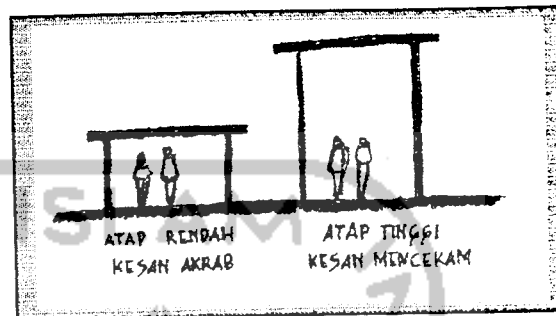 ISLAM
ATAP RENDAH
KESAN AKRAB
ATAP TINGGI
KESAN MENCEKAM